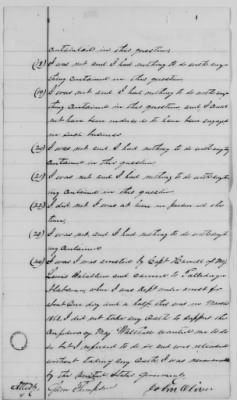 contained in this question
(18) I was not and I had nothing to do with any
thing contained in this question
(19) I was not and I had nothing to do with any
thing contained in this question, and I could
not have been induced to have been engaged
in such business
(20) I was not and I had nothing to do with anything
contained in this question
(21) I was not and I had nothing to do with anyth
ing contained in this question
(22) I did not I was at home in
time,
(23) I was not, and I had nothing to do with anyth
ing contained
(24) I was I was arrested by Capt of Maj
Lewis and carried to Talladega
Alabama, when I was kept under arrest for
about one day and a half this was in March
186 I did not take any oath to support the
Confederacy Maj wanted me to do
so but I refused to do it and was released
without taking any oath I was
by the United States Government
Attest,
John Oliver